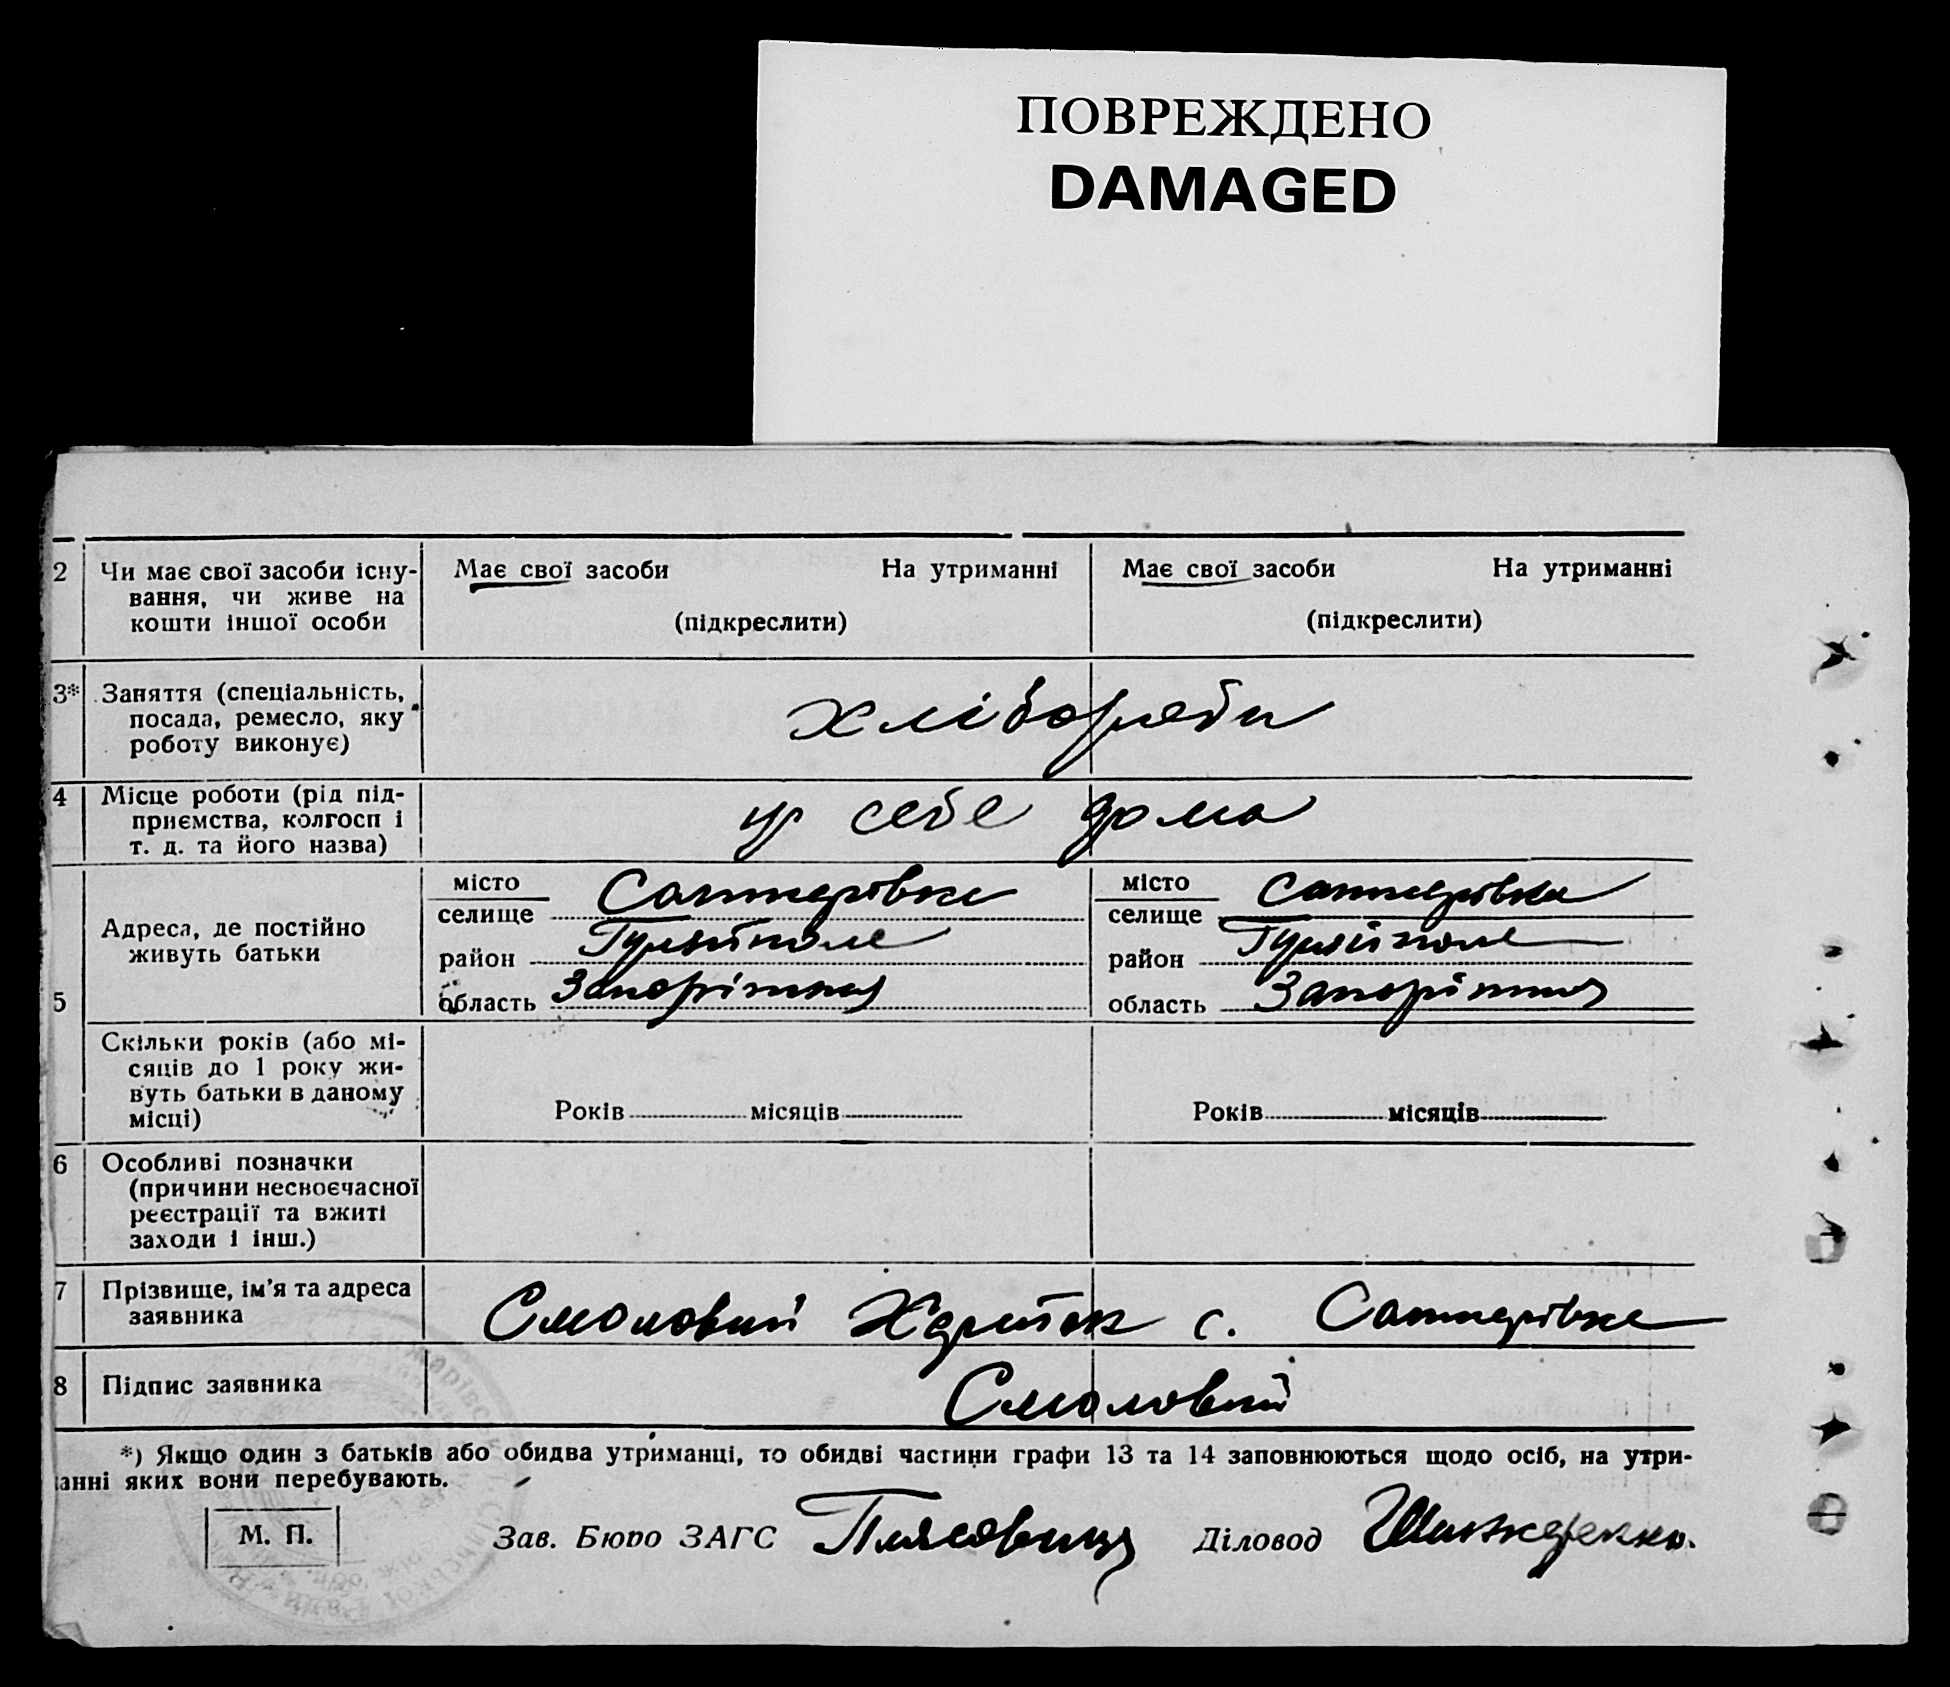 ПОВРЕЖДЕНО
DAMAGED
2 Чи має свої засоби існу-
вання, чи живе на
кошти іншої особи
Має свої засоби На утриманні
(підкреслити)
Має свої засоби На утриманні
(підкреслити)
3* Заняття (спеціальність,
посада, ремесло, яку
роботу виконує)
хлібороби
4 Місце роботи (рід під-
приємства, колгосп і
т. д. та його назва)
у себе дома
5 Адреса, де постійно
живуть батьки
місто
селище Санжарівка
район Гуляйполе
область Запоріжжя
місто
селище Санжарівка
район Гуляйполе
область Запоріжжя
Скільки років (або мі-
сяців до 1 року жи-
вуть батьки в даному
місці)
Років місяців
Років місяців
6 Особливі позначки
(причини несвоєчасної
реєстрації та вжиті
заходи і інш.)
7 Прізвище, ім'я та адреса
заявника
Смоловий с. Санжарівка
8 Підпис заявника
Смоловий
*) Якщо один з батьків або обидва утриманці, то обидві частини графи 13 та 14 заповнюються щодо осіб, на утри-
анні яких вони перебувають.
М. П. Зав. Бюро ЗАГС Діловод